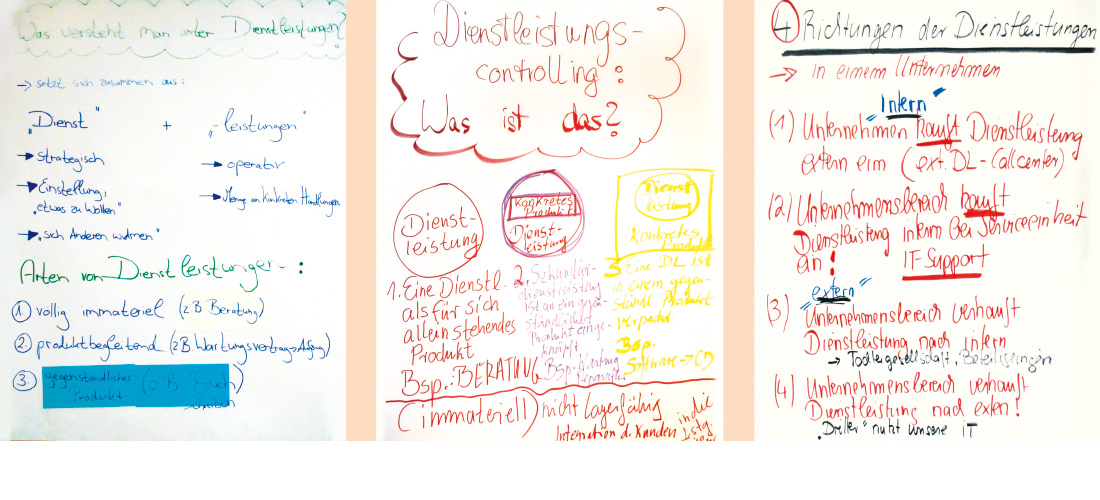 Was versteht man unter Dienstleistungen?
→ setzt sich zusammen aus:
„Dienst" + „-leistungen"
→ strategisch
→ Einstellung,
„etwas zu wollen"
→ „sich Anderen widmen"
→ operativ
→ Menge an konkreten Handlungen
Arten von Dienstleistungen:
① völlig immateriell (z.B. Beratung)
② produktbegleitend (z.B. Wartungsvertrag
③ gegenständliches (z.B. Buch)
Produkt
Dienstleistungs-
controlling:
Was ist das?
Dienst-
leistung
1. Eine Dienstl.
als für sich
alleinstehendes
Produkt
Bsp.: BERATUNG
konkretes
Produkt
Dienst-
leistung
2. Sekundär-
dienstleistung
ist an ein gegen-
ständliches
Produkt ange-
knüpft
Bsp. Wartung
Reparatur
Dienst
leistung
konkretes
Produkt
3 Eine DL ist
in einem gegen-
ständl. Produkt
verpackt
Bsp.
Software → CD
(immateriell) nicht lagerfähig
Integration d. Kunden in die
④ Richtungen der Dienstleistungen
→ in einem Unternehmen
"Intern"
(1) Unternehmen kauft Dienstleistung
extern ein (ext. DL - Callcenter)
(2) Unternehmensbereich kauft
Dienstleistung intern bei Serviceeinheit
an! IT-Support
"extern"
(3) Unternehmensbereich verkauft
Dienstleistung nach intern
→ Tochtergesellschaft, Beteiligungen
(4) Unternehmensbereich verkauft
Dienstleistung nach exten!
„Dritter" nutzt unsere IT